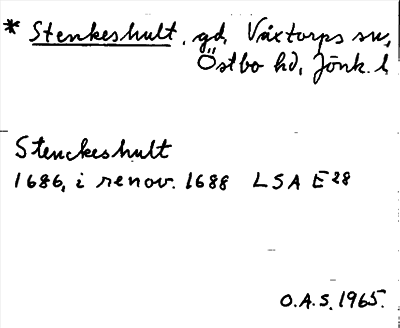 * Stenkeshult, gd, Våxtorps sn,
Östbo hd, Jönk. l.
Stenckeshult
1686, i renov. 1688 LSA E28
O.A.S. 1965.